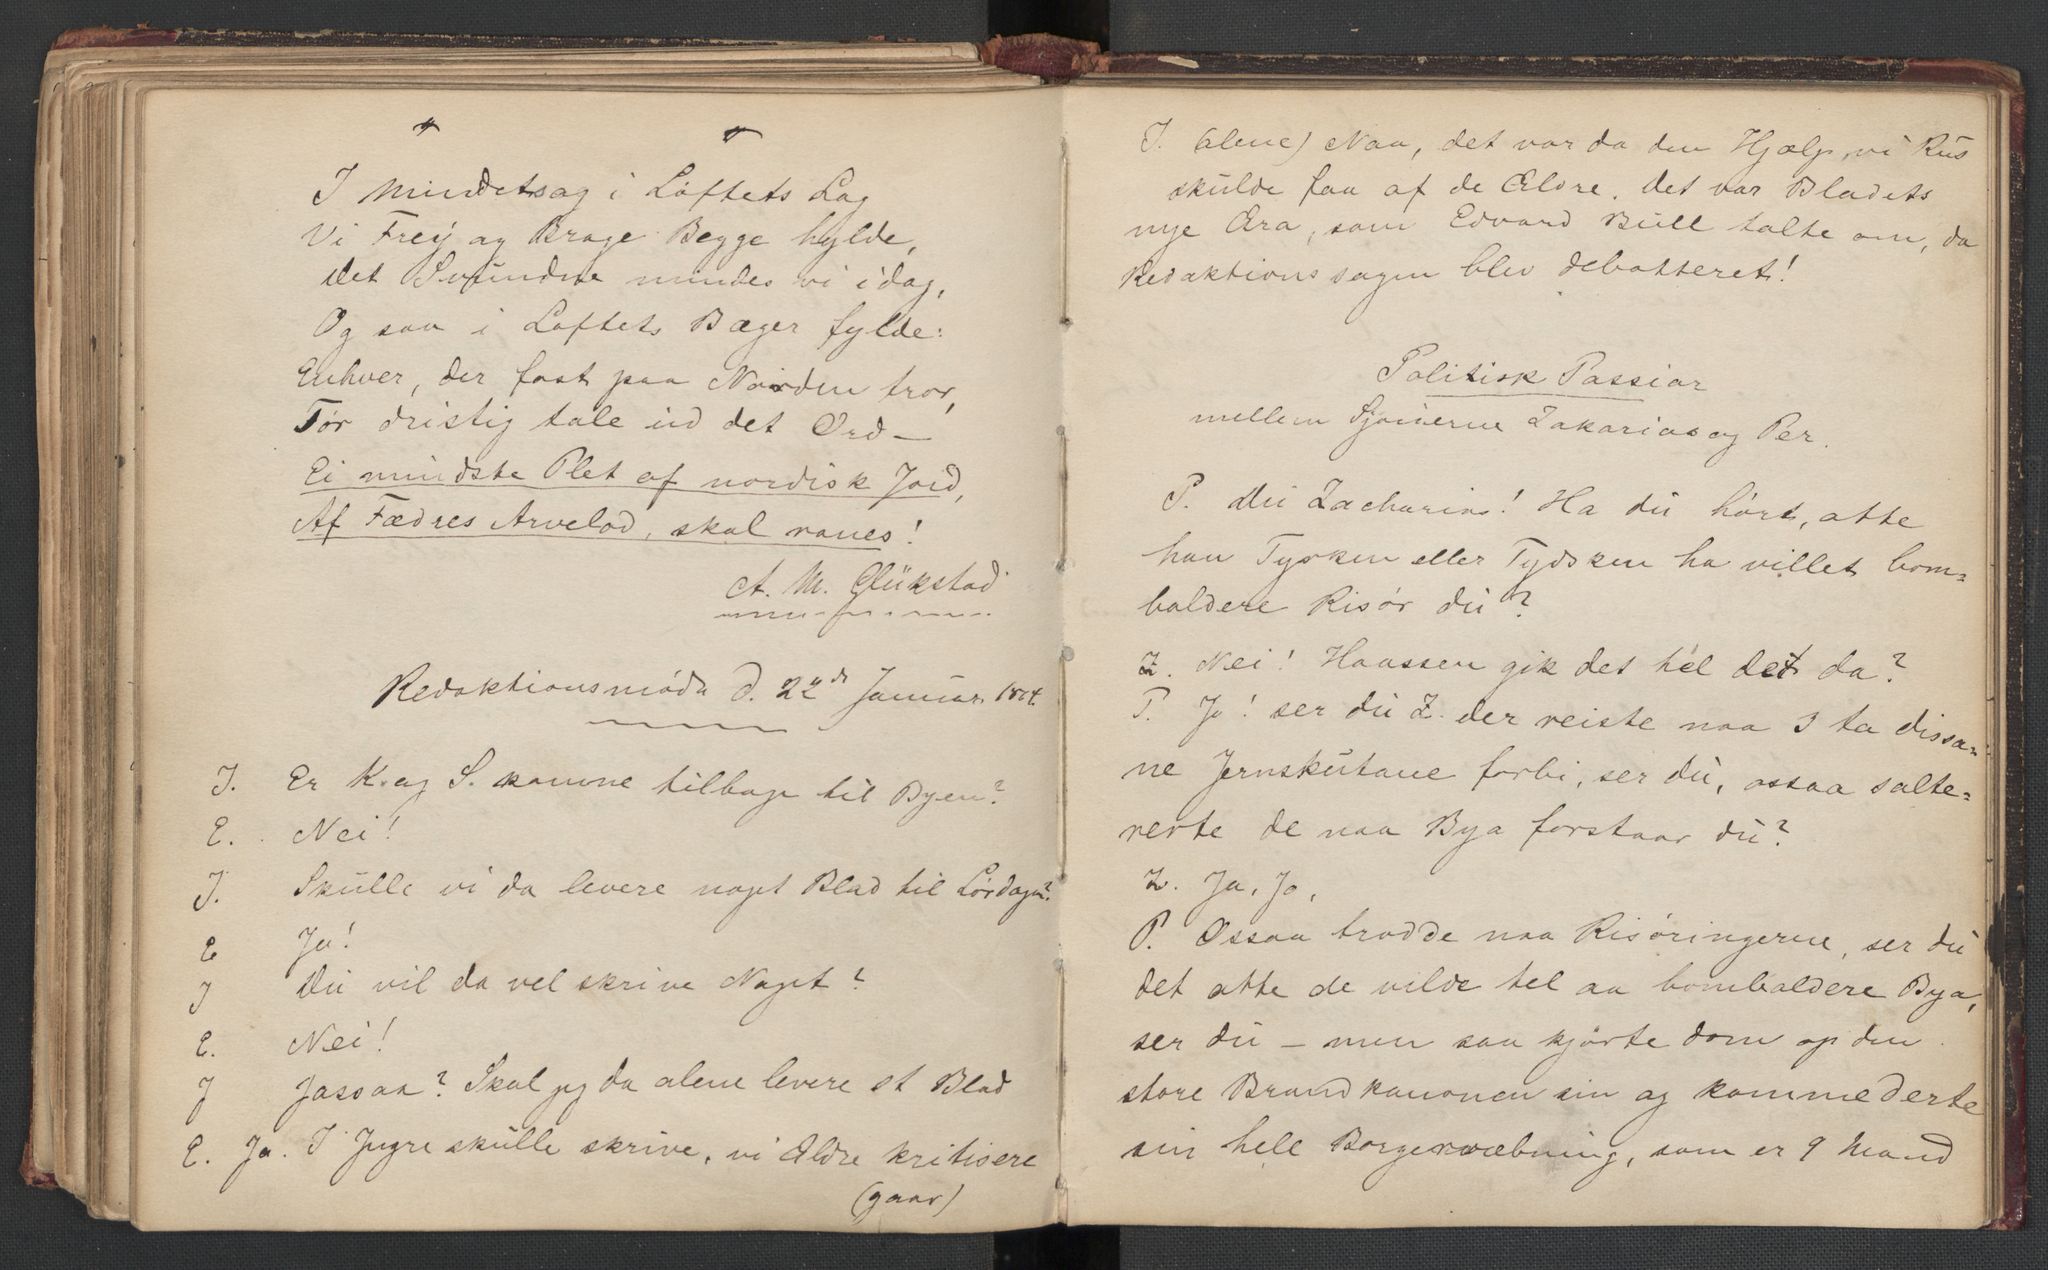 I Mindets og i Løftets Lag
Vi Frey og Brage Begge hylde,
Det Svundne mindes vi idag,
Og saa i Løftets Bæger fylde:
Enhver, der fast paa Norden tror,
Tør dristig tale ud det Ord –
Ei mindste Plet af nordisk Jord,
Af Fædres Arvelod, skal ranes!
A. M. Glükstad
Redaktionsmøde d. 22de Januar 1864.
J. Er K. og S. komne tilbage til Byen?
E. Nei!
J. Skulle vi da levere noget Blad til Lørdagen?
E Ja!
J Du vil da vel skrive Noget?
E. Nei!
J Jassaa? Skal jeg da alene levere et Blad
E. Ja. I Yngre skulle skrive, vi Ældre kritisere
(gaar)
J. (alene) Naa, det var da den Hjælp, vi Rus
skulde faa af de Ældre. Det var Bladets
nye Æra, som Edvard Bull talte om, da
Redaktionssagen blev debatteret!
Politisk Passiar
mellem Sjouerne Zakarias og Per.
P. Du Zacharias! Ha du hørt, atte
han Tysken eller Tydsken ha villet bom=
baldere Risør du?
Z. Nei! Haassen gik det hel det da?
P. Jo! ser du Z. der reiste naa 3 ta dissa=
ne Jernskutane forbi, ser du, ossaa salte=
rerte de naa Bya forstaar du?
Z. Ja, Ja,
P. Ossaa trodde naa Risøringerne, ser du
det atte de vilde tel aa bombaldere Bya,
ser du – men saa kjørte dom op den
store Brandkanonen sin og kommederte
sin hele Borgervæbning, som er 9 Mand